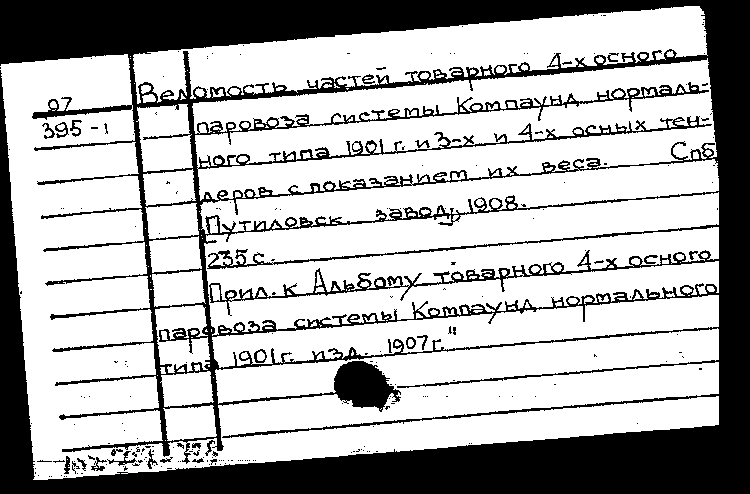 Ведомость частей товарного 4-х осного
97
395-1
паровоза системы Компаунд нормаль-
ного типа 1901 г. и 3-х и 4-х осных тен-
деров с показанием их веса. Спб
Путиловск. завод, 1908.
235 с.
Прил. к Альбому товарного 4-х осного
паровоза системы Компаунд нормального
типа 1901г. изд. 1907г."